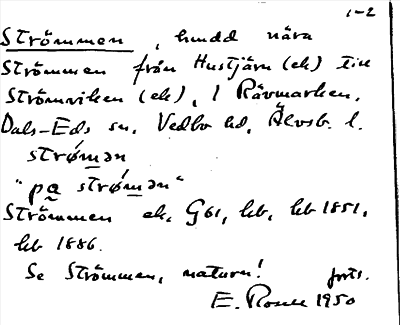 1-2
Strömmen, hmdd nära
Strömmen från Hustjärn (ek) till
Strömviken (ek), i Rävmarken,
Dals-Eds sn, Vedbo hd, Älvsb. l.
strø̀mən
"pa strø̀mən"
Strömmen ek. G61, hb, hb 1851,
hb 1886.
Se Strömmen, naturn! forts.
E. Rosell 1950